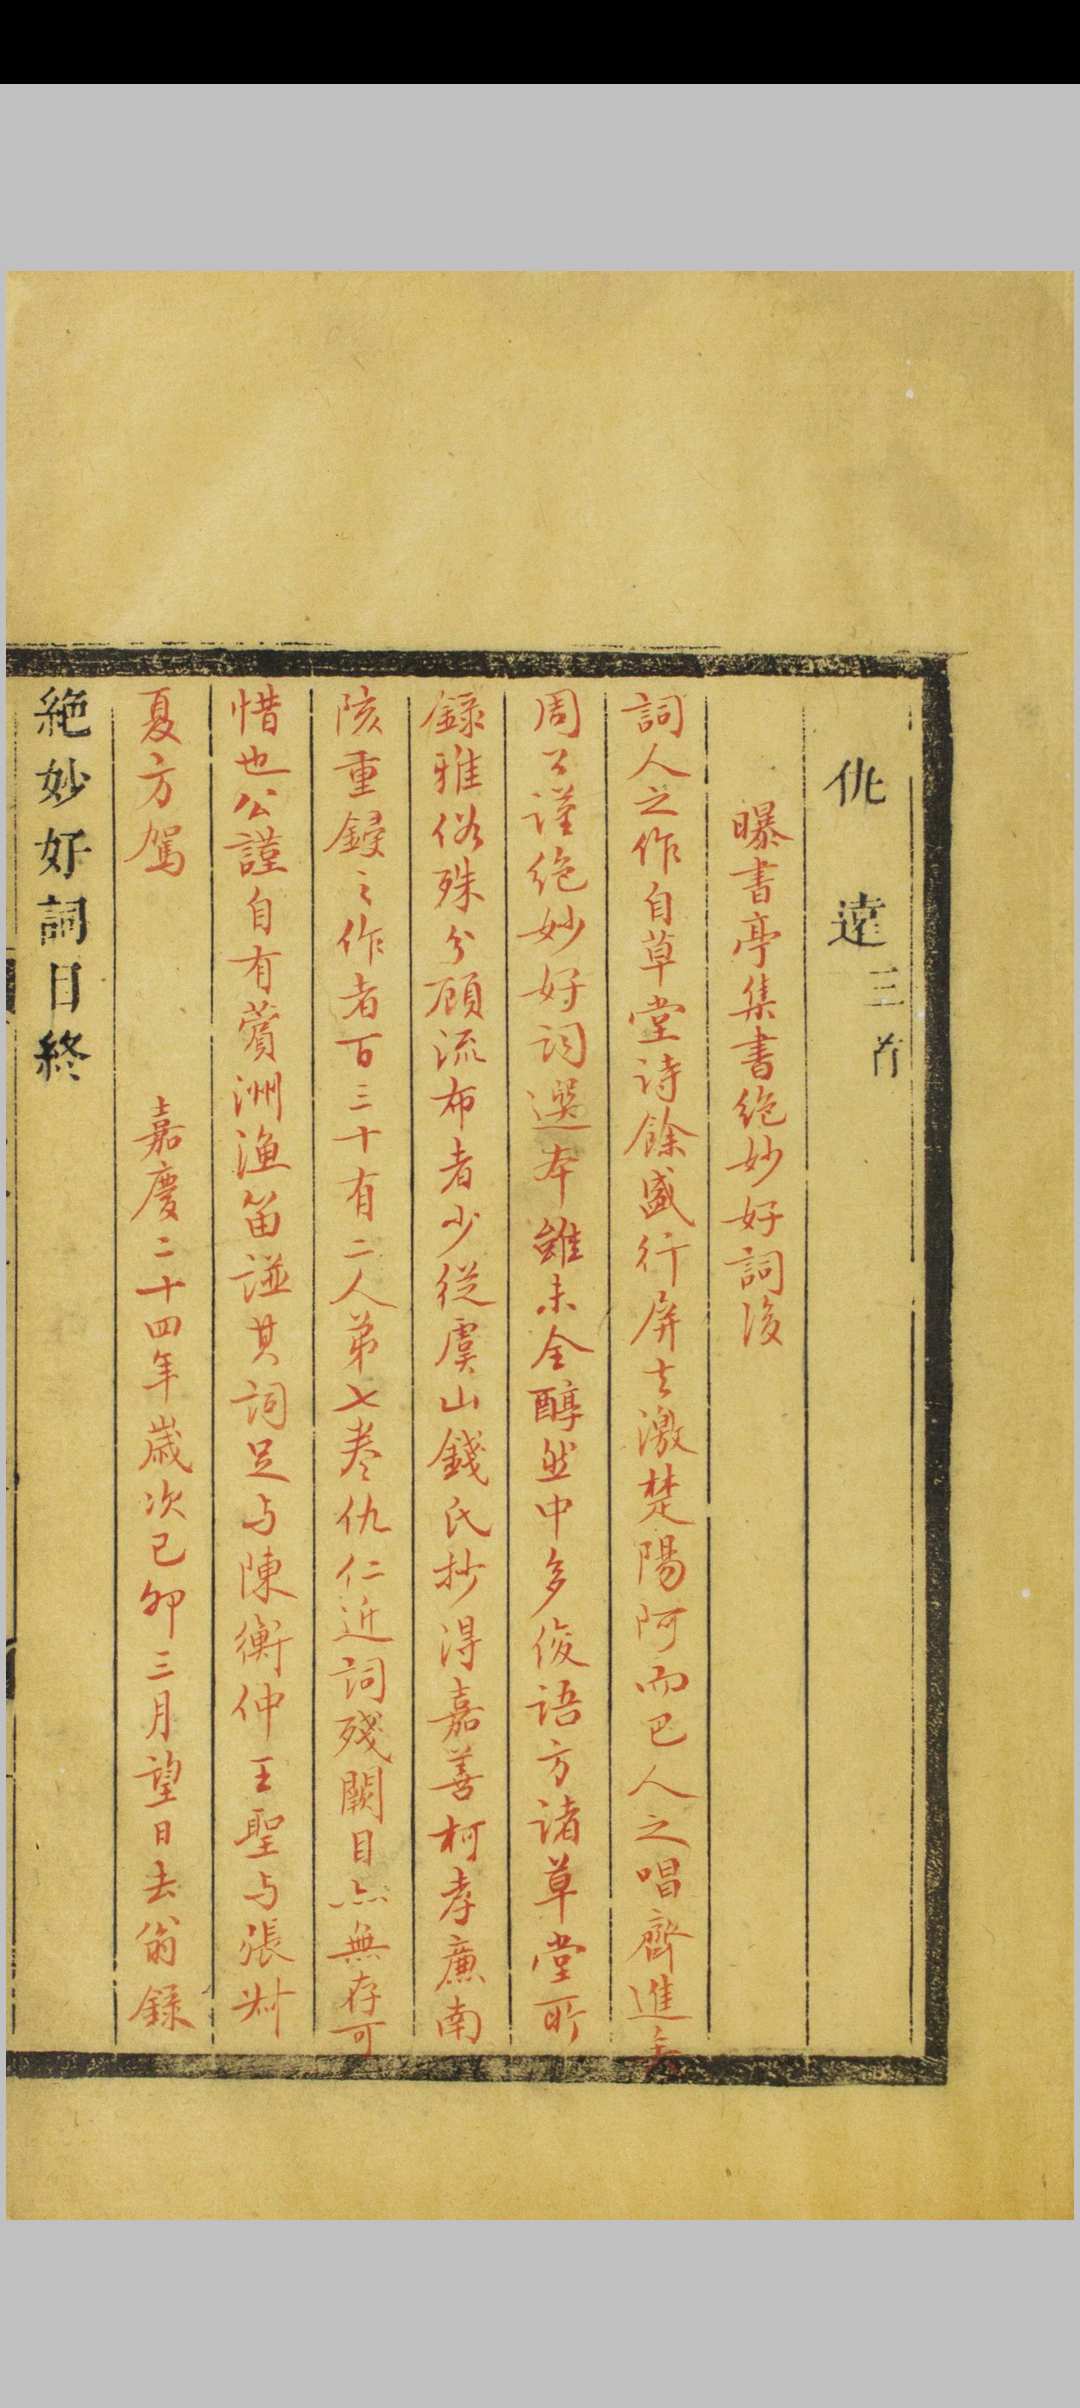 仇遠三首
曝書亭集書絶妙好詞後
詞人之作自草堂詩餘盛行屏去激楚陽阿而巴人之唱齊進矣
周公謹絶妙好词選本雖未全醇然中多俊語方诸草堂所
録雅俗殊分顧流布者少從虞山錢氏抄得嘉善柯孝廉南
陔重鋟之作者百三十有二人弟七卷仇仁近詞殘闕目亦無存可
惜也公謹自有薲洲渔笛譜其詞足与陳衡仲王聖与張叔
夏方駕　嘉慶二十四年歲次己卯三月望日去翁録
絶妙好詞目終